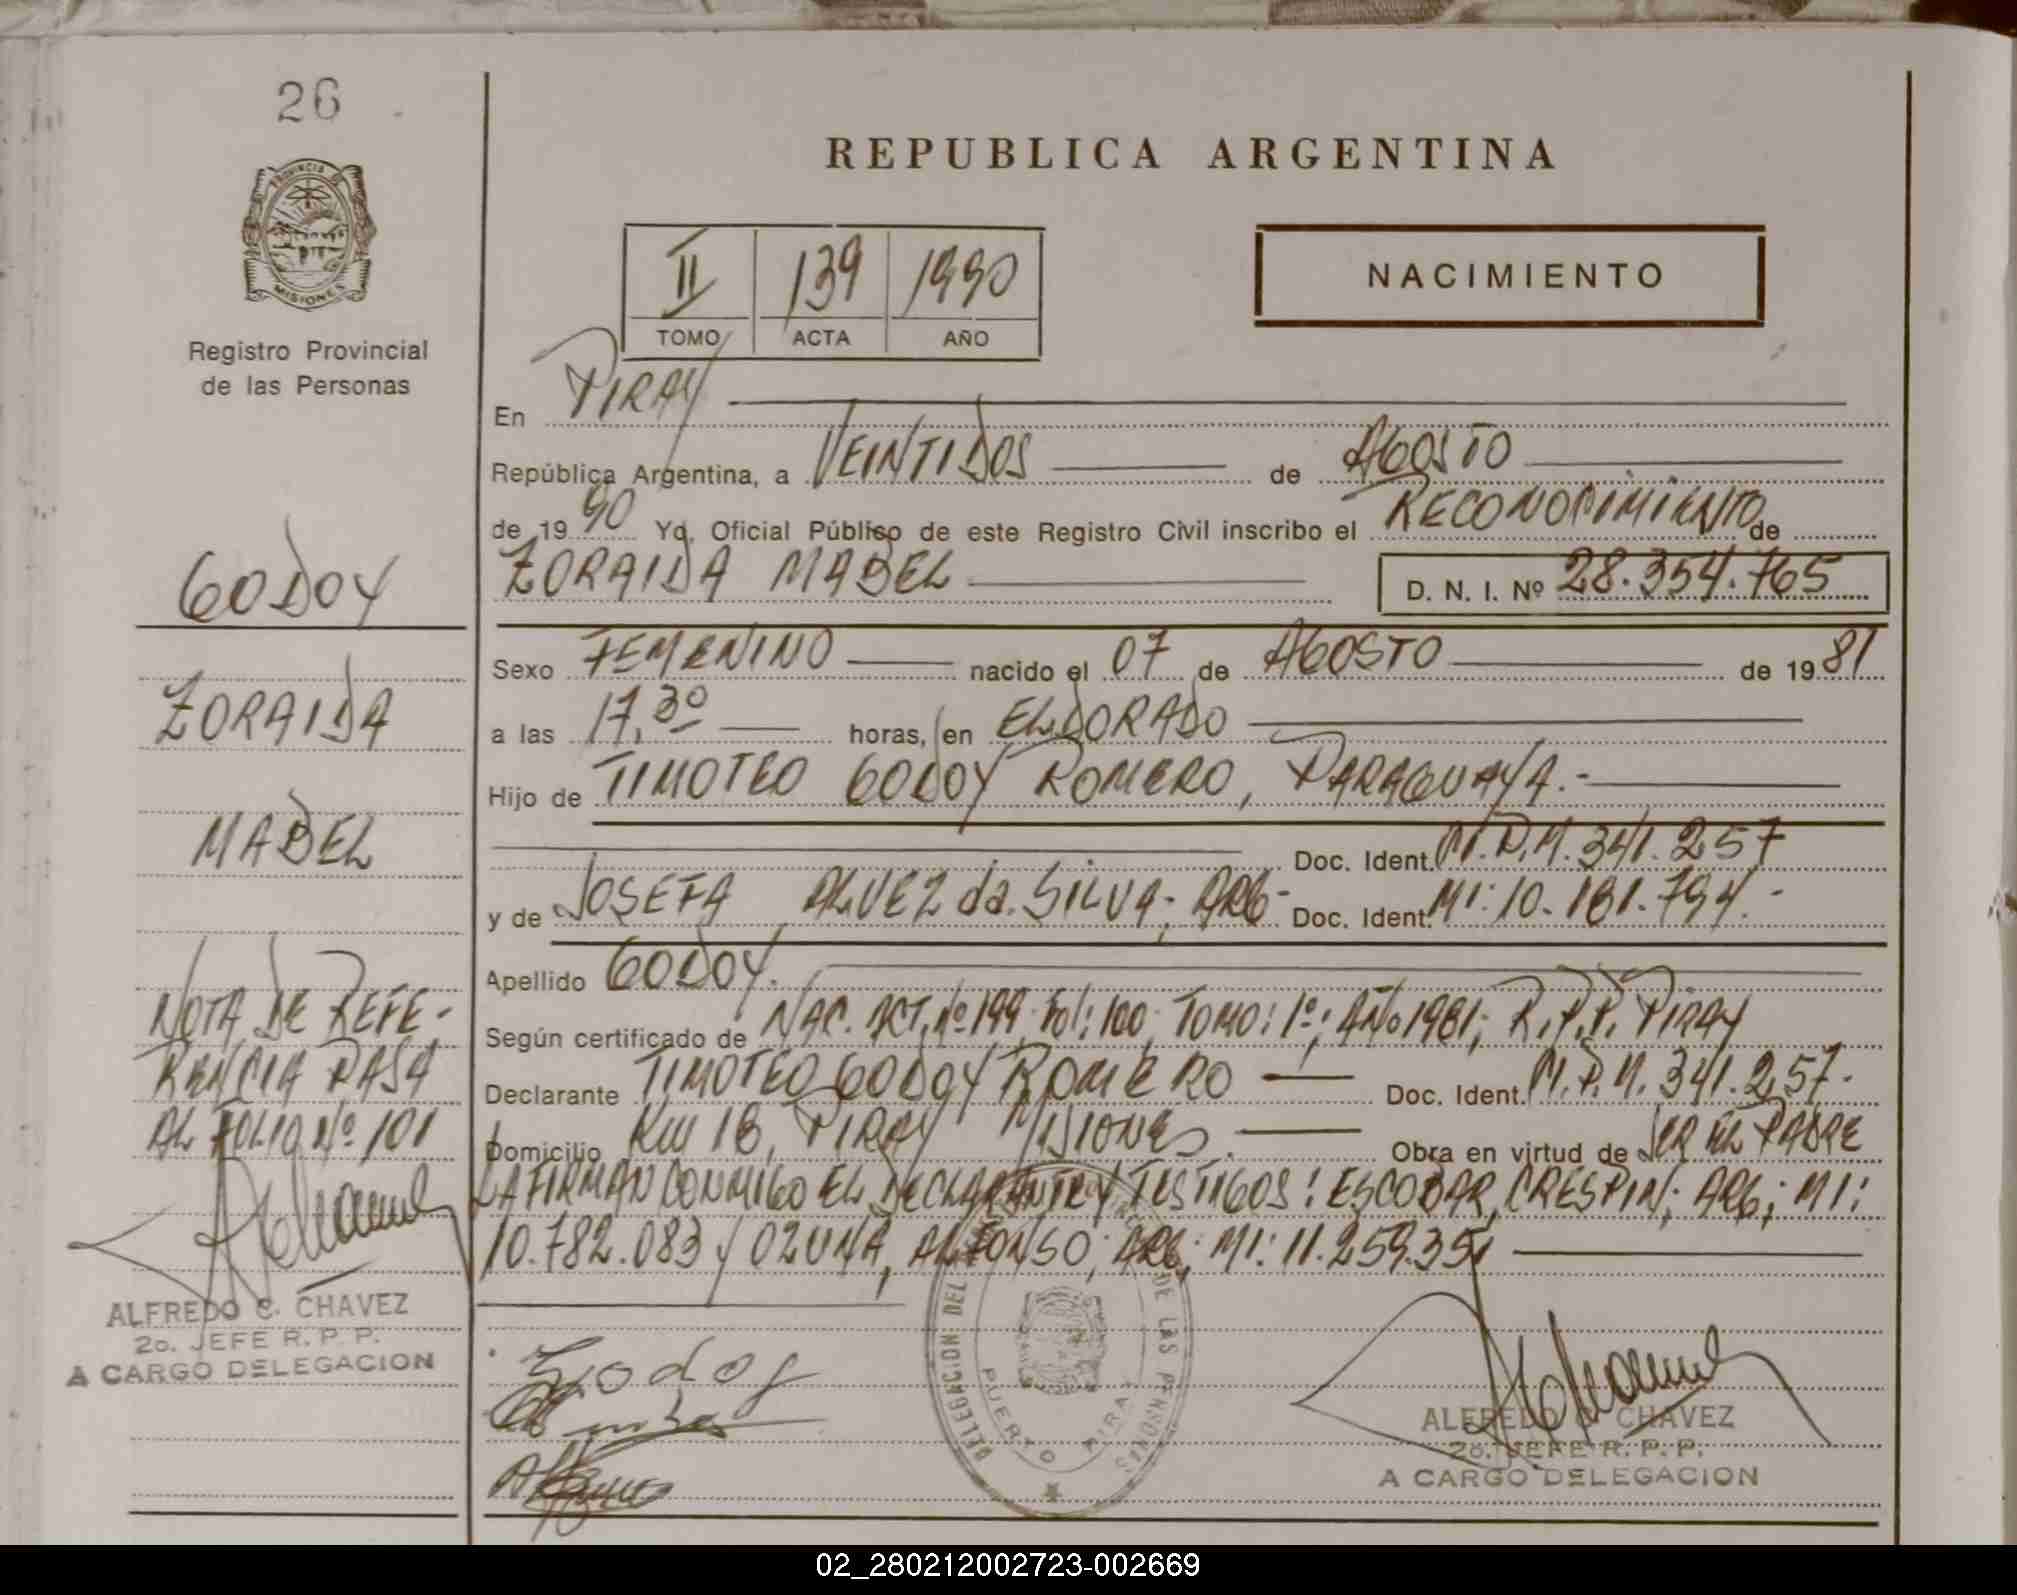 26
REPUBLICA ARGENTINA
PROVINCIA DE
MISIONES
Registro Provincial
de las Personas
II 139 1990
TOMO ACTA AÑO
NACIMIENTO
En PIRAY
República Argentina, a VEINTIDOS de AGOSTO
de 1990 Yo, Oficial Público de este Registro Civil inscribo el RECONOCIMIENTO de
ZORAIDA MABEL D. N. I. Nº 28.354.765
Sexo FEMENINO nacido el 07 de AGOSTO de 1981
a las 17,30 horas, en ELDORADO
Hijo de TIMOTEO GODOY ROMERO, PARAGUAYA.-
Doc. Ident. 341.257
y de JOSEFA ALVEZ da. SILVA; ARG- Doc. Ident. MI: 10.181.794.-
Apellido GODOY.
Según certificado de NAC. ACT. Nº 199; Fol: 100; TOMO: 1º; AÑO 1981; R.P.P. PIRAY
Declarante TIMOTEO GODOY ROMERO Doc. Ident. 341.257-
Domicilio Km 18, PIRAY MISIONES. Obra en virtud de SER EL PADRE
LA FIRMAN CONMIGO EL DECLARANTE Y TESTIGOS: ESCOBAR, CRESPIN; ARG; MI:
10.782.083 Y OZUNA, ALFONSO; ARG; MI: 11.259.351
GODOY
ZORAIDA
MABEL
NOTA DE REFE-
RENCIA PASA
AL FOLIO Nº 101
ALFREDO C. CHAVEZ
2o. JEFE R. P. P.
A CARGO DELEGACION
Godoy
DELEGACION DEL DE LAS PERSONAS
PUERTO PIRAY
ALFREDO C. CHAVEZ
2o. JEFE R. P. P.
A CARGO DELEGACION
02_280212002723-002669